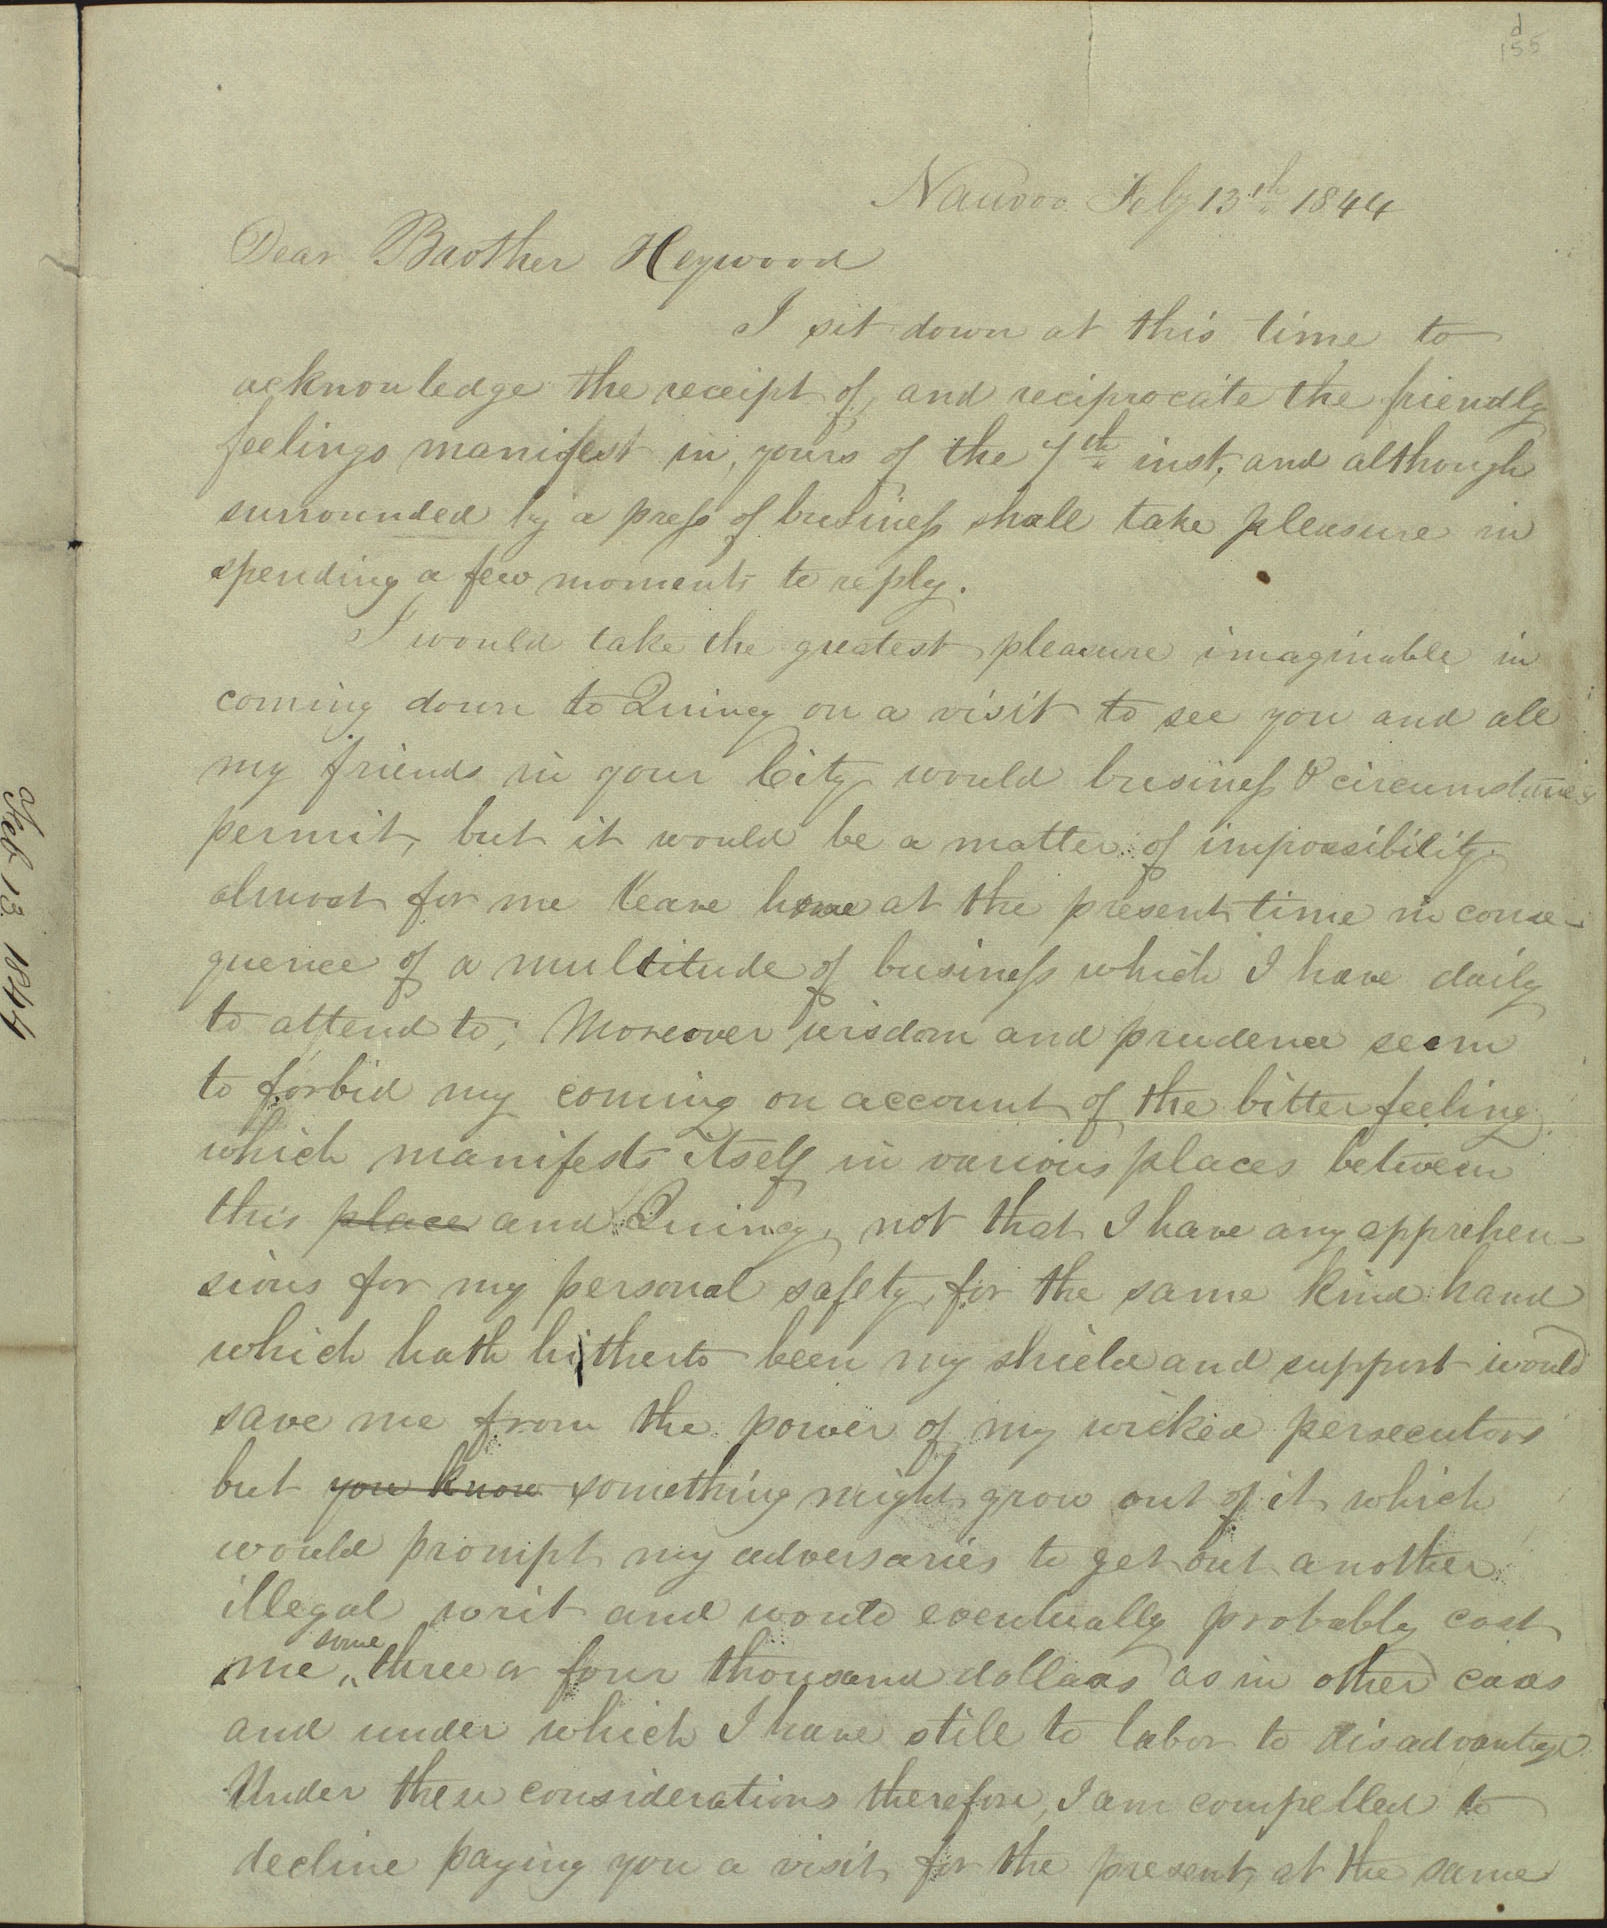 d
155
Nauvoo Feby 13th 1844
Dear Brother Heywood
I sit down at this time to
acknowledge the receipt of, and reciprocate the friendly
feelings manifest in, yours of the 7th inst, and although
surrounded by a press of business shall take pleasure in
spending a few moments to reply.
I would take the greatest pleasure imaginable in
coming down to Quincy on a visit to see you and all
my friends in your City would business & circumstances
permit, but it would be a matter of impossibility
almost for me leave home at the present time in conse-
quence of a multitude of business which I have daily
to attend to; Moreover wisdom and prudence seem
to forbid my coming on account of the bitter feeling
which manifests itself in various places between
this place and Quincy, not that I have any apprehen-
sions for my personal safety, for the same kind hand
which hath hitherto been my shield and support would
save me from the power of my wicked persecutors
but you know something might grow out of it which
would prompt my adversaries to get out another
illegal writ and would eventually probably cost
me some three or four thousand dollars as in other cases
and under which I have still to labor to disadvantage.
Under these considerations therefore, I am compelled to
decline paying you a visit for the present, at the same
Feb 13 1844